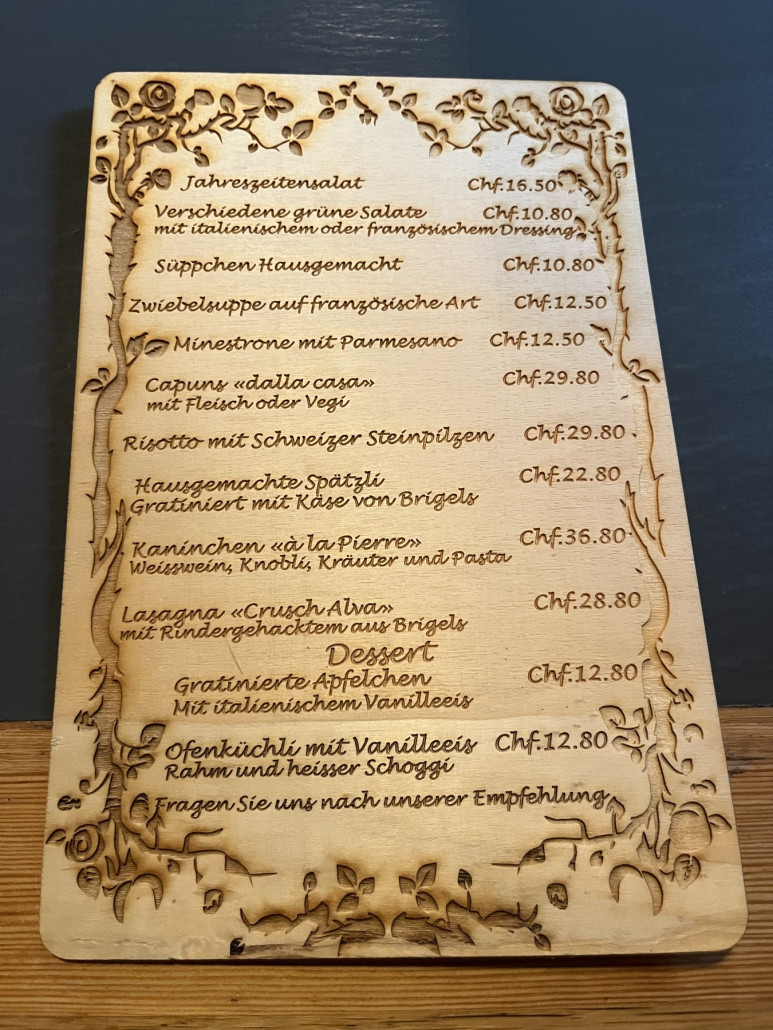 Jahreszeitensalat Chf.16.50
Verschiedene grüne Salate Chf.10.80
mit italienischem oder französischem Dressing
Süppchen Hausgemacht Chf.10.80
Zwiebelsuppe auf französische Art Chf.12.50
Minestrone mit Parmesano Chf.12.50
Capuns «dalla casa» Chf.29.80
mit Fleisch oder Vegi
Risotto mit Schweizer Steinpilzen Chf.29.80
Hausgemachte Spätzli Chf.22.80
Gratiniert mit Käse von Brigels
Kaninchen «à la Pierre» Chf.36.80
Weisswein, Knobli, Kräuter und Pasta
Lasagna «Crusch Alva» Chf.28.80
mit Rindergehacktem aus Brigels
Dessert
Gratinierte Äpfelchen Chf.12.80
Mit italienischem Vanilleeis
Ofenküchli mit Vanilleeis Chf.12.80
Rahm und heisser Schoggi
Fragen Sie uns nach unserer Empfehlung